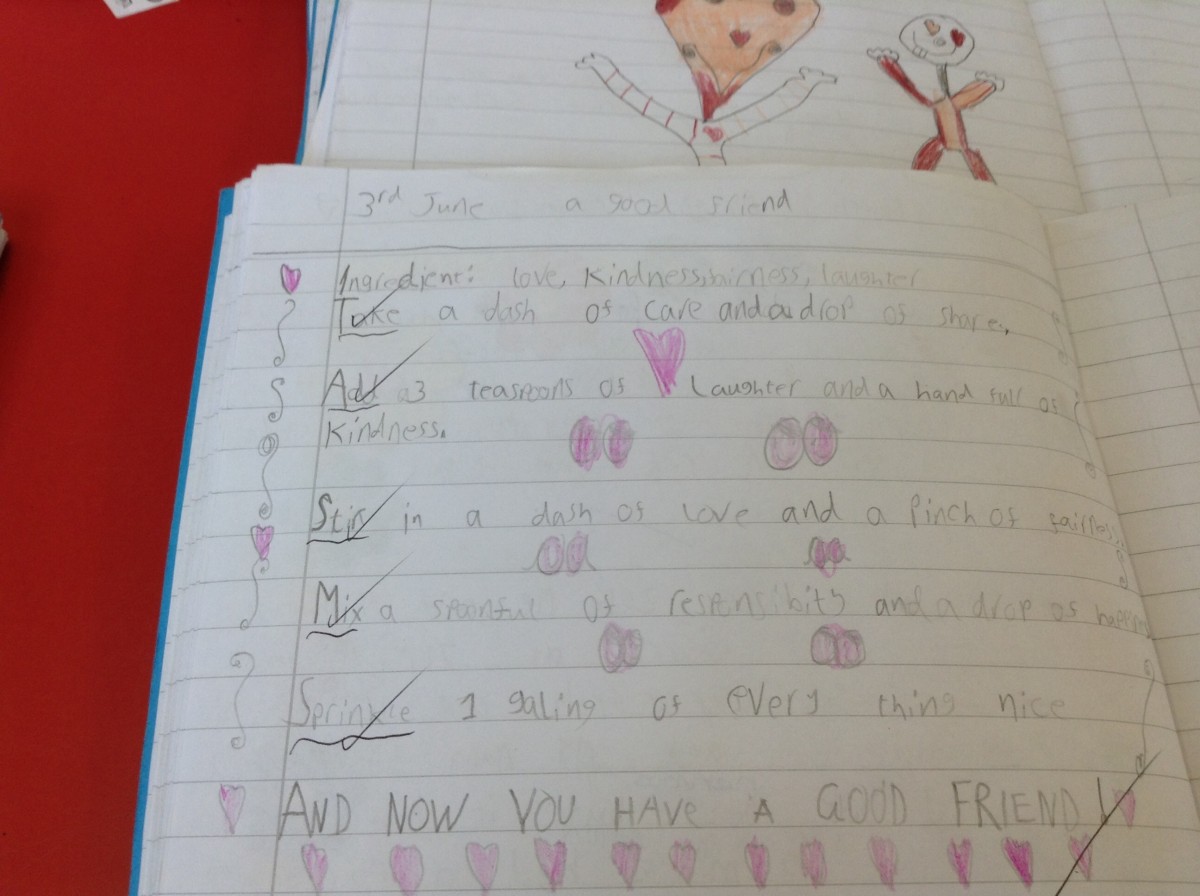 3rd June a good friend
Ingredient: love, Kindness, fairness, laughter
Take a dash of care and a drop of share,
Add a3 teaspoons of Laughter and a hand full of
Kindness.
Stir in a dash of love and a Pinch of fairness.
Mix a spoonful of responsibity and a drop of
Sprinkle 1 galing of every thing nice
AND NOW YOU HAVE A GOOD FRIEND!